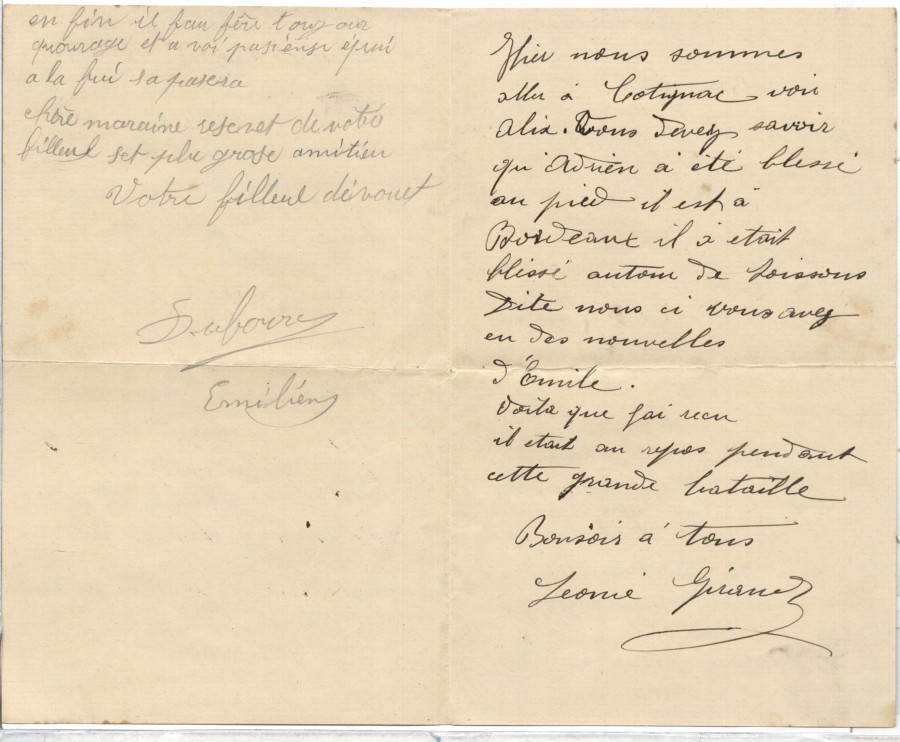 en fin il fau fére toujour
quourage et a voi pasiense épui
a la fui sa pasera
chère maraine resevet de votre
filleul set plu grose amitien
Votre filleul dévouet
Emilien
Hier nous sommes
allu à Cotignac voir
Alix. Vous devez savoir
qu'Adrien à été blessé
au pied il est à
Bordeaux il à etait
blissé autour de Soissons
Dite nous ci vous avez
eu des nouvelles
d'Emile.
Voila que jai recu
il etait au repos pendant
cette grande bataille
Bonsoir à tous
Leonie Giraud